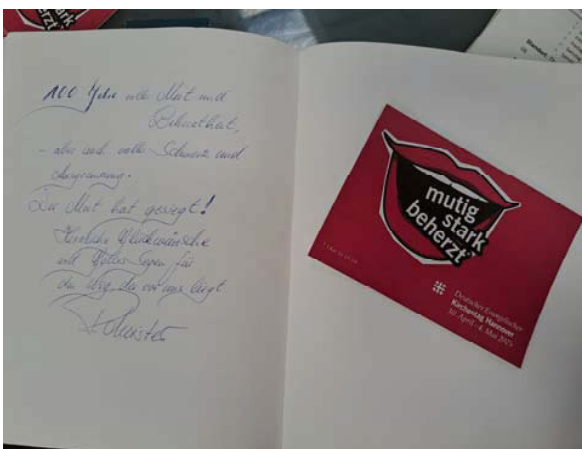 100 Jahre voller Mut und
Beherztheit,
- aber auch voller Schmerz und
Ausgrenzung.
Der Mut hat gesiegt!
Herzliche Glückwünsche
und Gottes Segen für
den Weg, der vor uns liegt.
mutig
stark
beherzt
Deutscher Evangelischer
Kirchentag Hannover
30. April – 4. Mai 2025